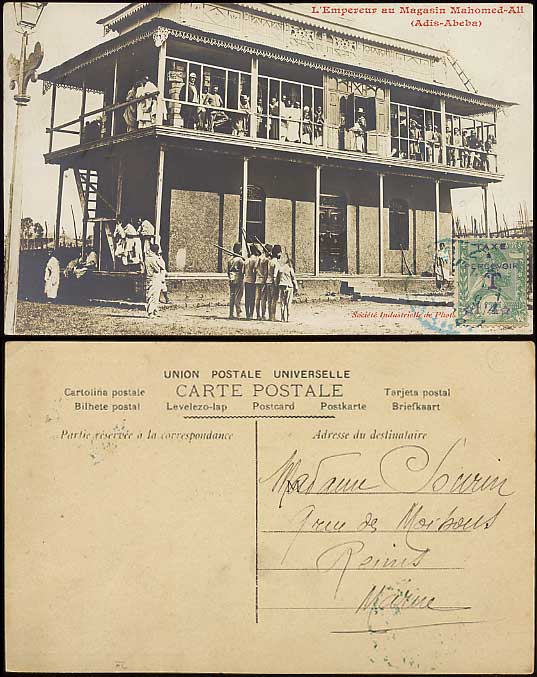 L'Empereur au Magasin Mahomed-Ali
(Adis-Abeba)
TAXE
PERCEVOIR
T
Société Industrielle de Photo
UNION POSTALE UNIVERSELLE
Cartolina postale CARTE POSTALE Tarjeta postal
Bilhete postal Levelezo-lap Postcard Postkarte Briefkaart
Partie réservée à la correspondance
Adresse du destinataire
Madame
rue de
Reims
Marne